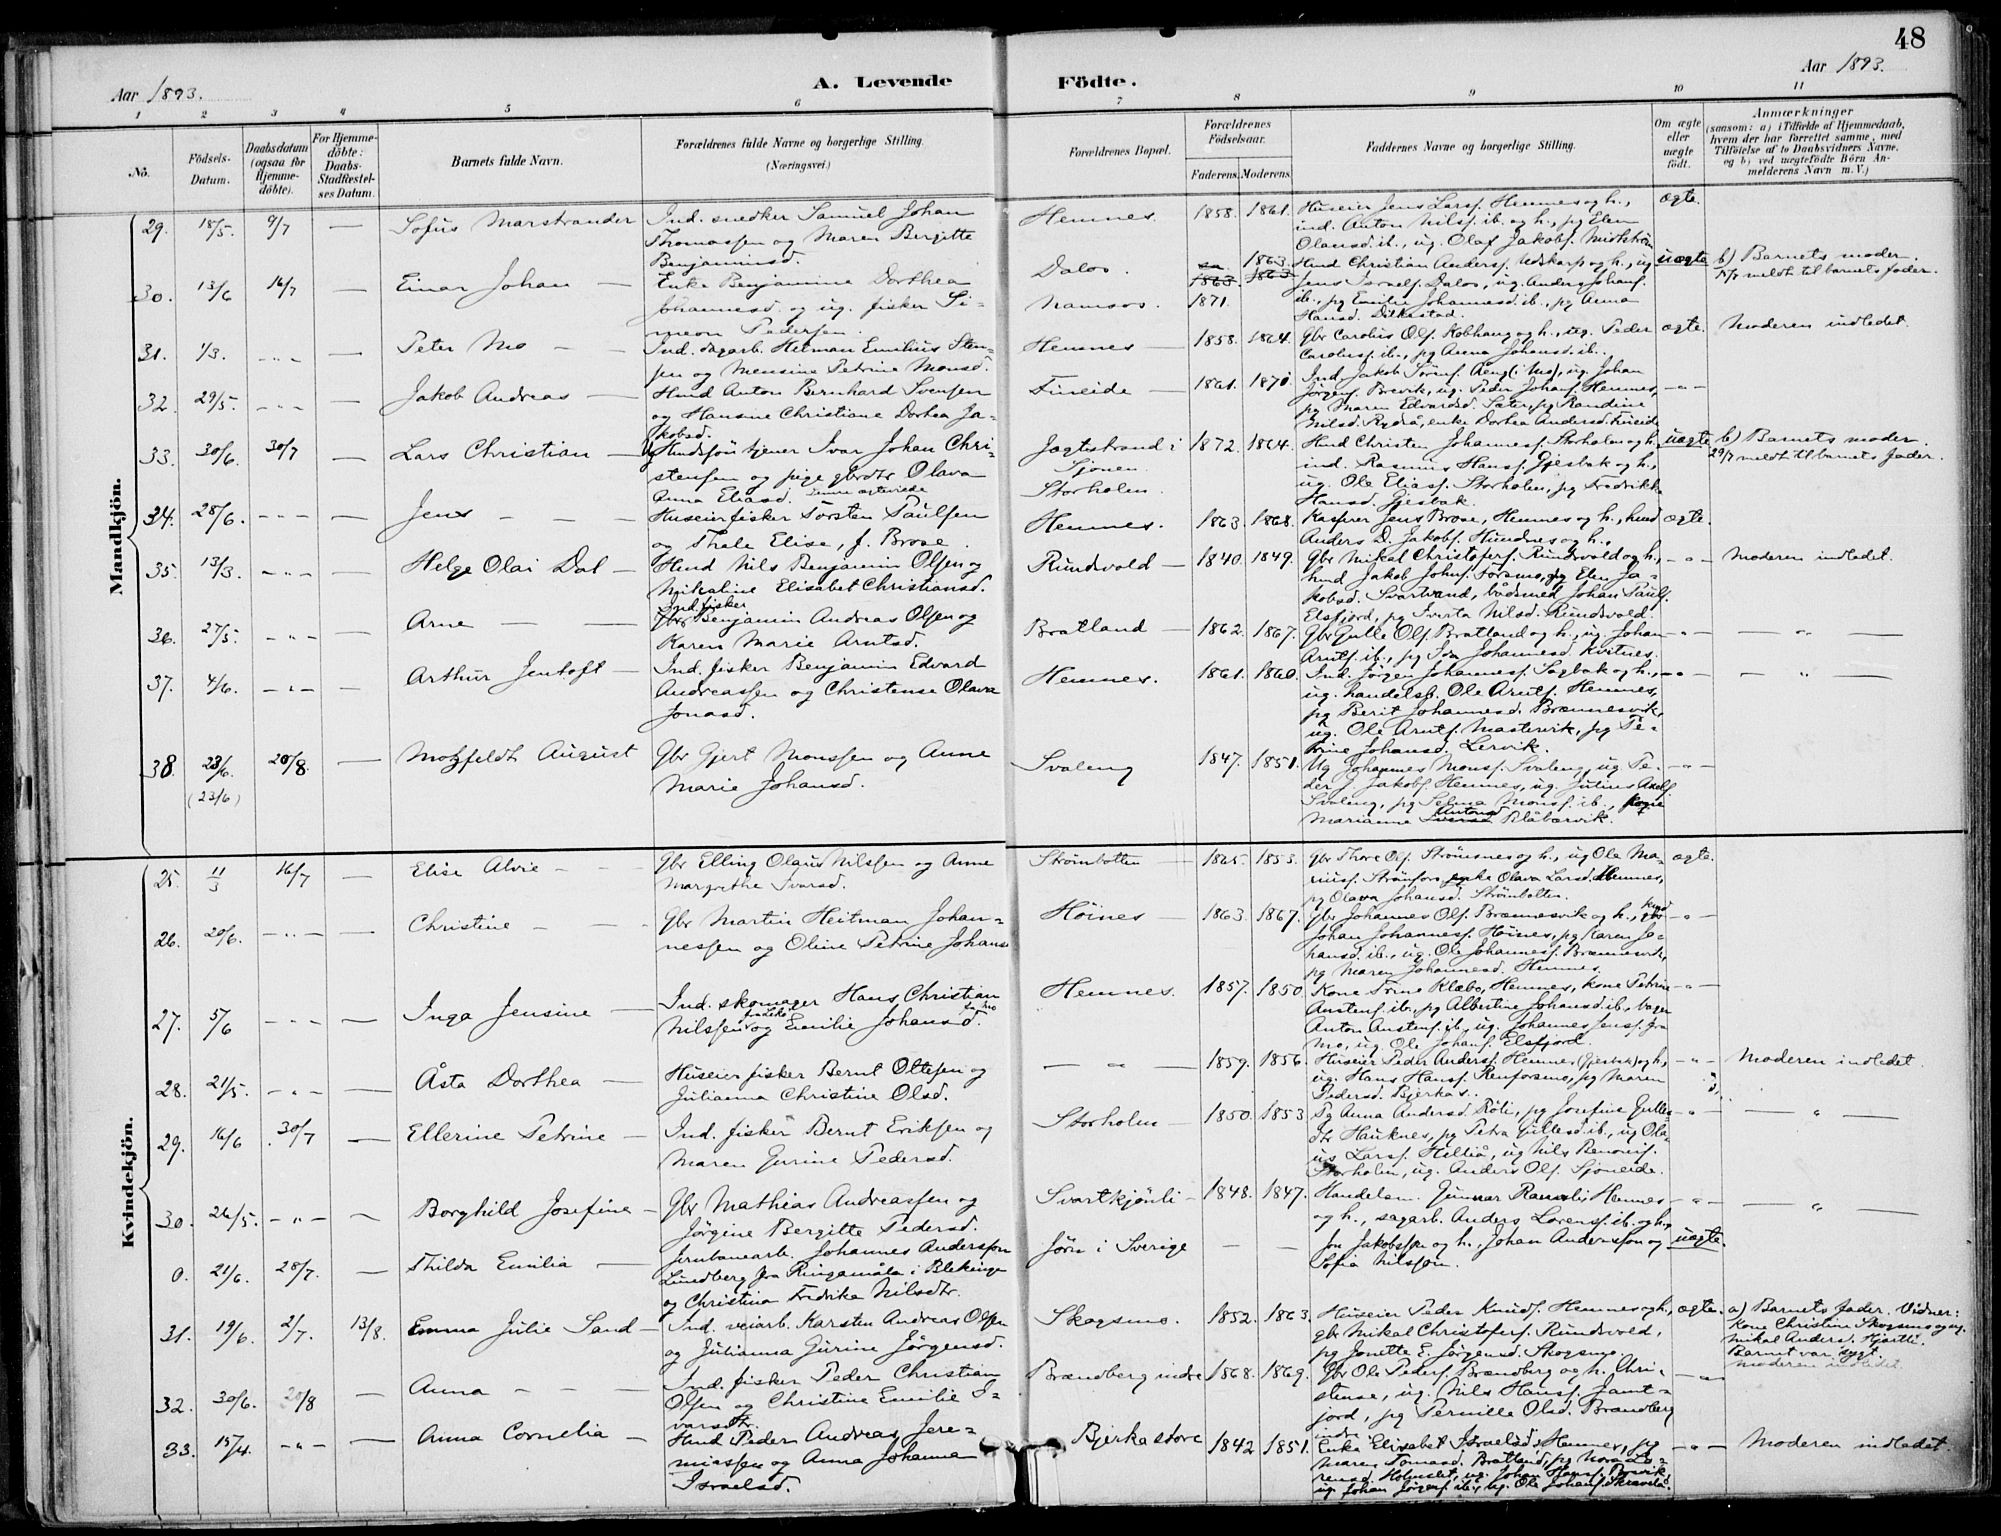 48
Aar 1893.
A. Levende Födte.
Aar 1893.
1 2 3 4 5 6 7 8 9 10 11
No.
Födsels-Datum.
Daabsdatum (ogsaa for Hjemme-döbte).
For Hjemme-döbte: Daabs-Stadfæstel-ses Datum.
Barnets fulde Navn.
Forældrenes fulde Navne og borgerlige Stilling.
(Næringsvei.)
Forældrenes Bopæl.
Forældrenes Födselsaar.
Faderens. Moderens.
Faddernes Navne og borgerlige Stilling.
Om ægte eller uægte födt.
Anmærkninger
(saasom: a) i Tilfælde af Hjemmedaab,
hvem der har forrettet samme, med
Tilföielse af to Daabsvidners Navne,
og b) ved uægtefödte Börn An-
melderens Navn m. V.)
Mandkjön.
29. 18/5. 9/7 — Sofus Marstrander
Ind. snedker Samuel Johan
Thomassen og Maren Bergitte
Benjaminsd.
Hemnes. 1858. 1861.
Huseier Jens Larsf. Hemnes og h.,
ind. Anton Nilsf. ib. og h., pg Elen
Olausd. ib., ug. Olaf Jakobf.
ægte.
30. 13/6 16/7 — Einar Johan —
Enke Benjamine Dorthea
Johannesd. og ug. fisker Si-
meon Pedersen.
Dalos. Namsos. 1863. 1871.
Hmd Christian Andersf. Udskarp og h., ug
Jens Israelf. Dalos, ug. Anders Johanf.
ib., pg Emilie Johannesd. ib., pg Anna
Hansd.
uægte
b) Barnets moder.
meldt til barnets fader.
31. 1/3. — Peter Mo —
Ind. dagarb. Hetman Emilius Sten-
sen og Mensine Petrine Monsd.
Hemnes — 1858. 1864.
Gbr Carolus Olf. Kobhaug og h., ug. Peder
Carolusf. ib., pg Anna Johansd. ib.
ægte.
Moderen indledet.
32. 29/5. — Jakob Andreas —
Hmd Anton Bernhard Svensen
og Hansine Christiane Dorhea Ja-
kobsd.
Fineide — 1861. 1870.
Ind. Jakob Sörenf. Aeng (i Mo), ug. Johan
Jörgenf. Brevik, ug. Peder Johanf. Hemnes,
pg Maren Edvardsd. Sæter, pg Randine
Nilsd. Rydraa, enke Dorhea Andersd. Fineide
33. 30/6. 30/7 — Lars Christian —
Husfön tjener Ivar Johan Chri-
stensen og pige gbrdtr Olava
Anna Eliasd.
Jægtstrand i
Sjonen
Storholen.
1872. 1864.
Hmd Christen Johannesf. Storholen og h.,
ind. Rasmus Hansf. Gjesbak og h.,
ug. Ole Eliasf. Storholm, pg Fredrikke
Hansd. Gjesbak.
uægte
b) Barnets moder.
29/7 meldt til barnets fader.
34. 28/6. — Jens —
Huseier fisker Torsten Paulsen
og Thale Elise, f. Brose.
Hemnes. 1863. 1868.
Kasserer Jens Brose, Hemnes og h., hmd
Anders D. Jakobf. Hundnes og h.,
ægte.
35. 13/3. — Helge Olai Dal —
Hmd Nils Benjamin Olsen og
Mikaline Elisabet Christiansd.
Rundvold — 1840. 1849.
Gbr Mikal Christoferf. Rundvold og h.,
hmd Jakob Johnf. Forsmo, pg Elen Ja-
kobsd. Svartvand, bådsmed Johan Paulf.
Elsfjord, pg Iverta Nilsd. Rundvold.
Moderen indledet.
36. 27/5. — Arne —
Ind. fisker
Benjamin Andreas Olsen og
Karen Marie Arntsd.
Bratland — 1862. 1867.
Gbr Gulle Olf. Bratland og h., ug. Johan
Arntf. ib., pg Ida Johannesd. Kvitnes.
37. 4/6. — Arthur Jentoft —
Ind. fisker Benjamin Edvard
Andreassen og Christense Olava
Jonasd.
Hemnes. 1861. 1860.
Ind. Jörgen Johannesf. Sagbak og h.,
ug. handelsb. Ole Arntf. Hemnes,
pg Berit Johannesd. Brennesvik,
ug. Ole Arntf. Mastervik, pg Pe-
trine Johansd. Lervik.
38. 23/6. (23/6) 20/8. — Motzfeldt August
Gbr Gjert Monssen og Anne
Marie Johansd.
Svaleng 1847. 1851.
Ug Johannes Monsf. Svaleng, ug Pe-
der J. Jakobf. Hemnes, ug. Julius Axelf.
Svaleng, pg Selma Monsf. ib.,
Marianne Antonsd Blåbærvik.
Kvindekjön.
25. 11/3 16/7 — Elise Alvie —
Gbr Elling Olaus Nilssen og Anne
Margrethe Ivarsd.
Strömbotten — 1865. 1853.
Gbr Thore Olf. Strömsnes og h., ug Ole Ma-
riusf. Strömfors, enke Olava Larsd. Hemnes,
pg Olava Johansd. Strömbotten.
ægte.
26. 20/6. — Christine —
Gbr Martin Heitman Johan-
nessen og Oline Petrine Johansd
Höines — 1863. 1867.
Gbr Johannes Olf. Brennesvik og h.,
Johan Johannesf. Höines, pg Karen Jo-
hansd. ib., ug. Ole Johannesf. Brennesvik,
pg Maren Johannesd. Hemnes.
27. 5/6 — Inga Jensine —
Ind. skomager Hans Christian
Nilssen og Emilie Johansd.
Hemnes. 1857. 1850.
Kone Trine Klæbo, Hemnes, kone Petrine
Austenf. ib., pg Albertine Johansd. ib., bager
Anton Austenf. ib., ug. Johannes Jensf. fra
Mo, ug. Ole Johanf. Elsfjord.
28. 21/5. — Åsta Dorthea —
Huseier fisker Bernt Ottesen og
Julianna Christine Olsd.
1859. 1856.
Huseier Peder Andersf. Hemnes (Gjesbak) og h,
ug. Hans Hansf. Renforsmo, pg Maren
Pedersd. Bjerkås.
Moderen indledet.
29. 16/6 30/7 — Ellerine Petrine —
Ind. fisker Bernt Eriksen og
Maren Gurine Pedersd.
Storholm — 1850. 1853
Pg Anna Andersd. Röli, pg Josefine Gulles-
dtr Hauknes, pg Petra Gullesd. ib., ug Ola-
us Larsf. Hellå, ug Nils Benonif.
Storholm, ug. Anders Olf. Sjoneide.
30. 26/5. — Borghild Josefine —
Gbr Mathias Andreassen og
Jörgine Bergitte Pedersd.
Svartkjönli — 1848. 1847.
Handelsm. Gunnar Hemnes
og h., sagarb. Anders Lorensf. ib. og h.,
0. 21/6. 28/7. — Thilda Emilia —
Jernbanearb. Johannes Andersson
Lundberg fra Ringamåla i Blekinge
og Christina Fredrika Nilsdtr.
Jörn i Sverige
Jon Jakobssen og h., Johan Andersson og
Sofia Nilsson.
uægte.
31. 19/6. 2/7. 13/8. Emma Julie Sand —
Ind. veiarb. Karsten Andreas Olsen
og Julianna Gurine Jörgensd.
Skogsmo. 1852. 1863.
Huseier Peder Knudf. Hemnes og h.,
gbr Mikal Christoferf. Rundvold,
pg Jonette E. Jörgensd. Skogsmo.
ægte.
a) Barnets fader. Vidner:
Kone Christine Skogsmo og ug.
Mikal Anders. Hjartli.
Barnet var sygt.
Moderen indledet
32. 30/6. 20/8 — Anna —
Ind. fisker Peder Christian
Olsen og Christine Emilie I-
varsdtr.
Brændberg indre 1868. 1869.
Gbr Ole Pedersf. Brændberg og h. Chri-
stense, ug. Nils Hansf. Jamt-
jord, pg Pernille Olsd. Brandberg
indre.
33. 15/4. — Anna Cornelia —
Hmd Peder Andreas Jere-
miassen og Anna Johanna
Israelsd.
Bjerka store 1842 1851.
Enke Elisabet Israelsd. Hemnes, pg
Maren Tomasd. Bratland, pg Nora Lo-
rensd. Holmslet, ug. Johan Hansf. Brevik
ug. Johan Jörgenf. ib., ug. Ole Johanf.
Moderen indledet.